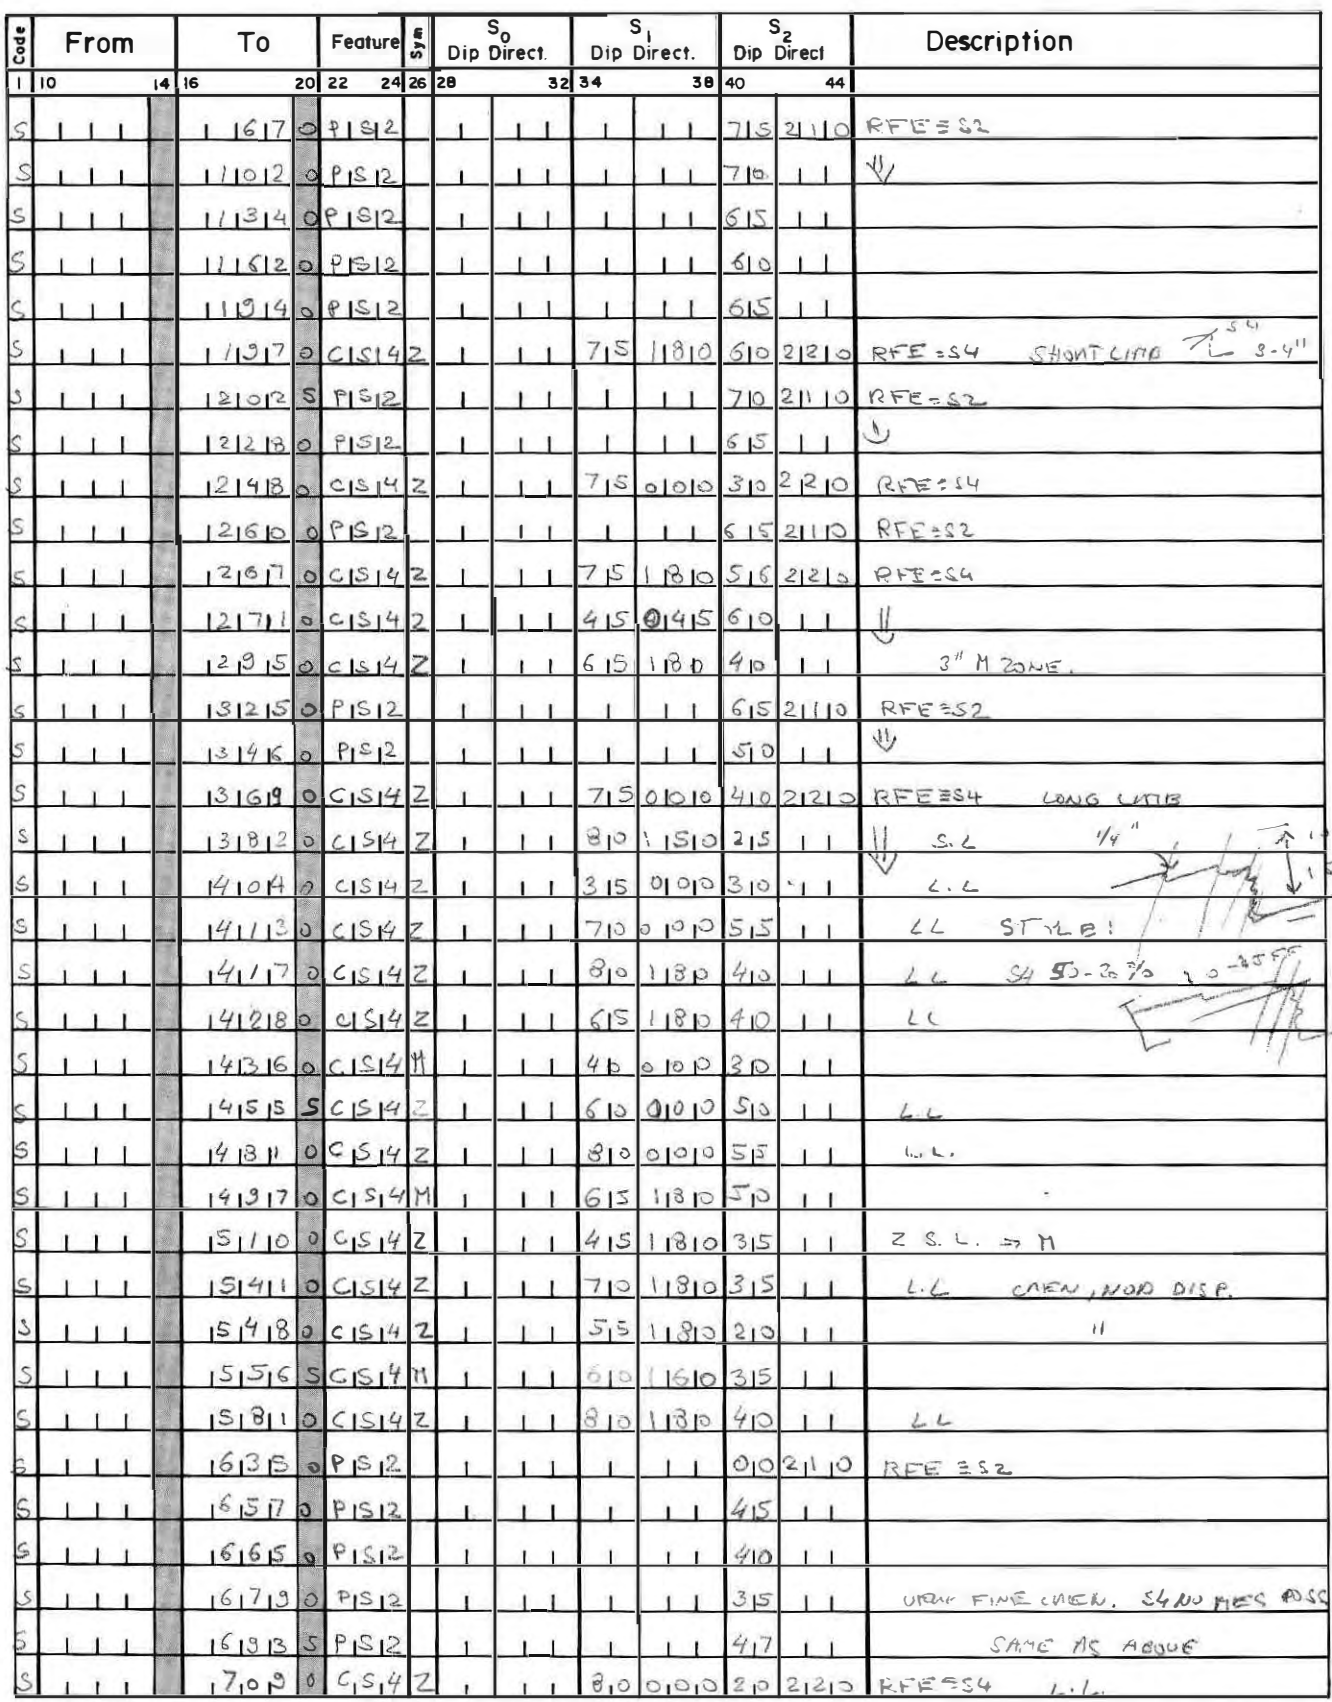 Code From To Feature Sym S0 Dip Direct. S1 Dip Direct. S2 Dip Direct Description
1 10 14 16 20 22 24 26 28 32 34 38 40 44
S 67 0 PS2 75 210 RFE ≡ S2
S 102 0 PS2 70 ⇓
S 134 0 PS2 65
S 162 0 PS2 60
S 194 0 PS2 65
S 197 0 CS4 Z 75 180 60 220 RFE = S4 SHORT LIMB S4 3-4"
S 202 5 PS2 70 210 RFE = S2
S 228 0 PS2 65 ⇓
S 248 0 CS4 Z 75 000 30 220 RFE = S4
S 260 0 PS2 65 210 RFE = S2
S 267 0 CS4 Z 75 180 56 220 RFE = S4
S 271 0 CS4 Z 45 045 60 ⇓
S 295 0 CS4 Z 65 180 40 3" M ZONE.
S 325 0 PS2 65 210 RFE ≡ S2
S 346 0 PS2 50 ⇓
S 369 0 CS4 Z 75 000 40 220 RFE ≡ S4 LONG LIMB
S 382 0 CS4 Z 80 150 25 ⇓ S.L 1/4"
S 404 0 CS4 Z 35 000 30 L.L
S 413 0 CS4 Z 70 000 55 LL STYLE!
S 417 0 CS4 Z 80 180 40 LL S4
S 428 0 CS4 Z 65 180 40 LL
S 436 0 CS4 M 40 000 30
S 455 5 CS4 Z 60 000 50 L.L
S 481 0 CS4 Z 80 000 55 L.L.
S 497 0 CS4 M 65 180 50
S 510 0 CS4 Z 45 180 35 Z S.L. ⇒ M
S 541 0 CS4 Z 70 180 35 L.L CREN, NOD DISP.
S 548 0 CS4 Z 55 180 20 "
S 556 5 CS4 M 60 160 35
S 581 0 CS4 Z 80 180 40 LL
S 635 0 PS2 00 210 RFE ≡ S2
S 657 0 PS2 45
S 665 0 PS2 40
S 679 0 PS2 35 FINE CREN. S4 NO MES POSS
S 693 5 PS2 47 SAME AS ABOVE
S 709 0 CS4 Z 80 000 20 220 RFE ≡ S4 L.L.